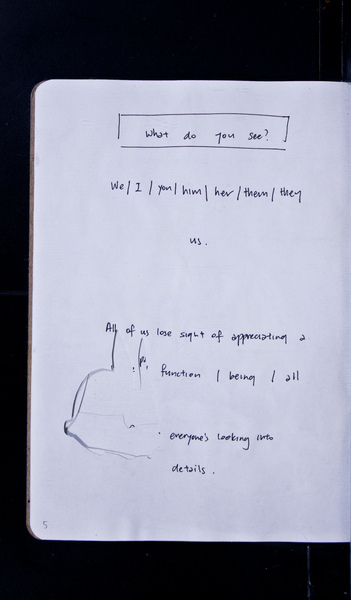 What do you see?
We / I / you / him / her / them / they
us.
All of us lose sight of appreciating a
function / being / all
everyone's looking into
details.
5